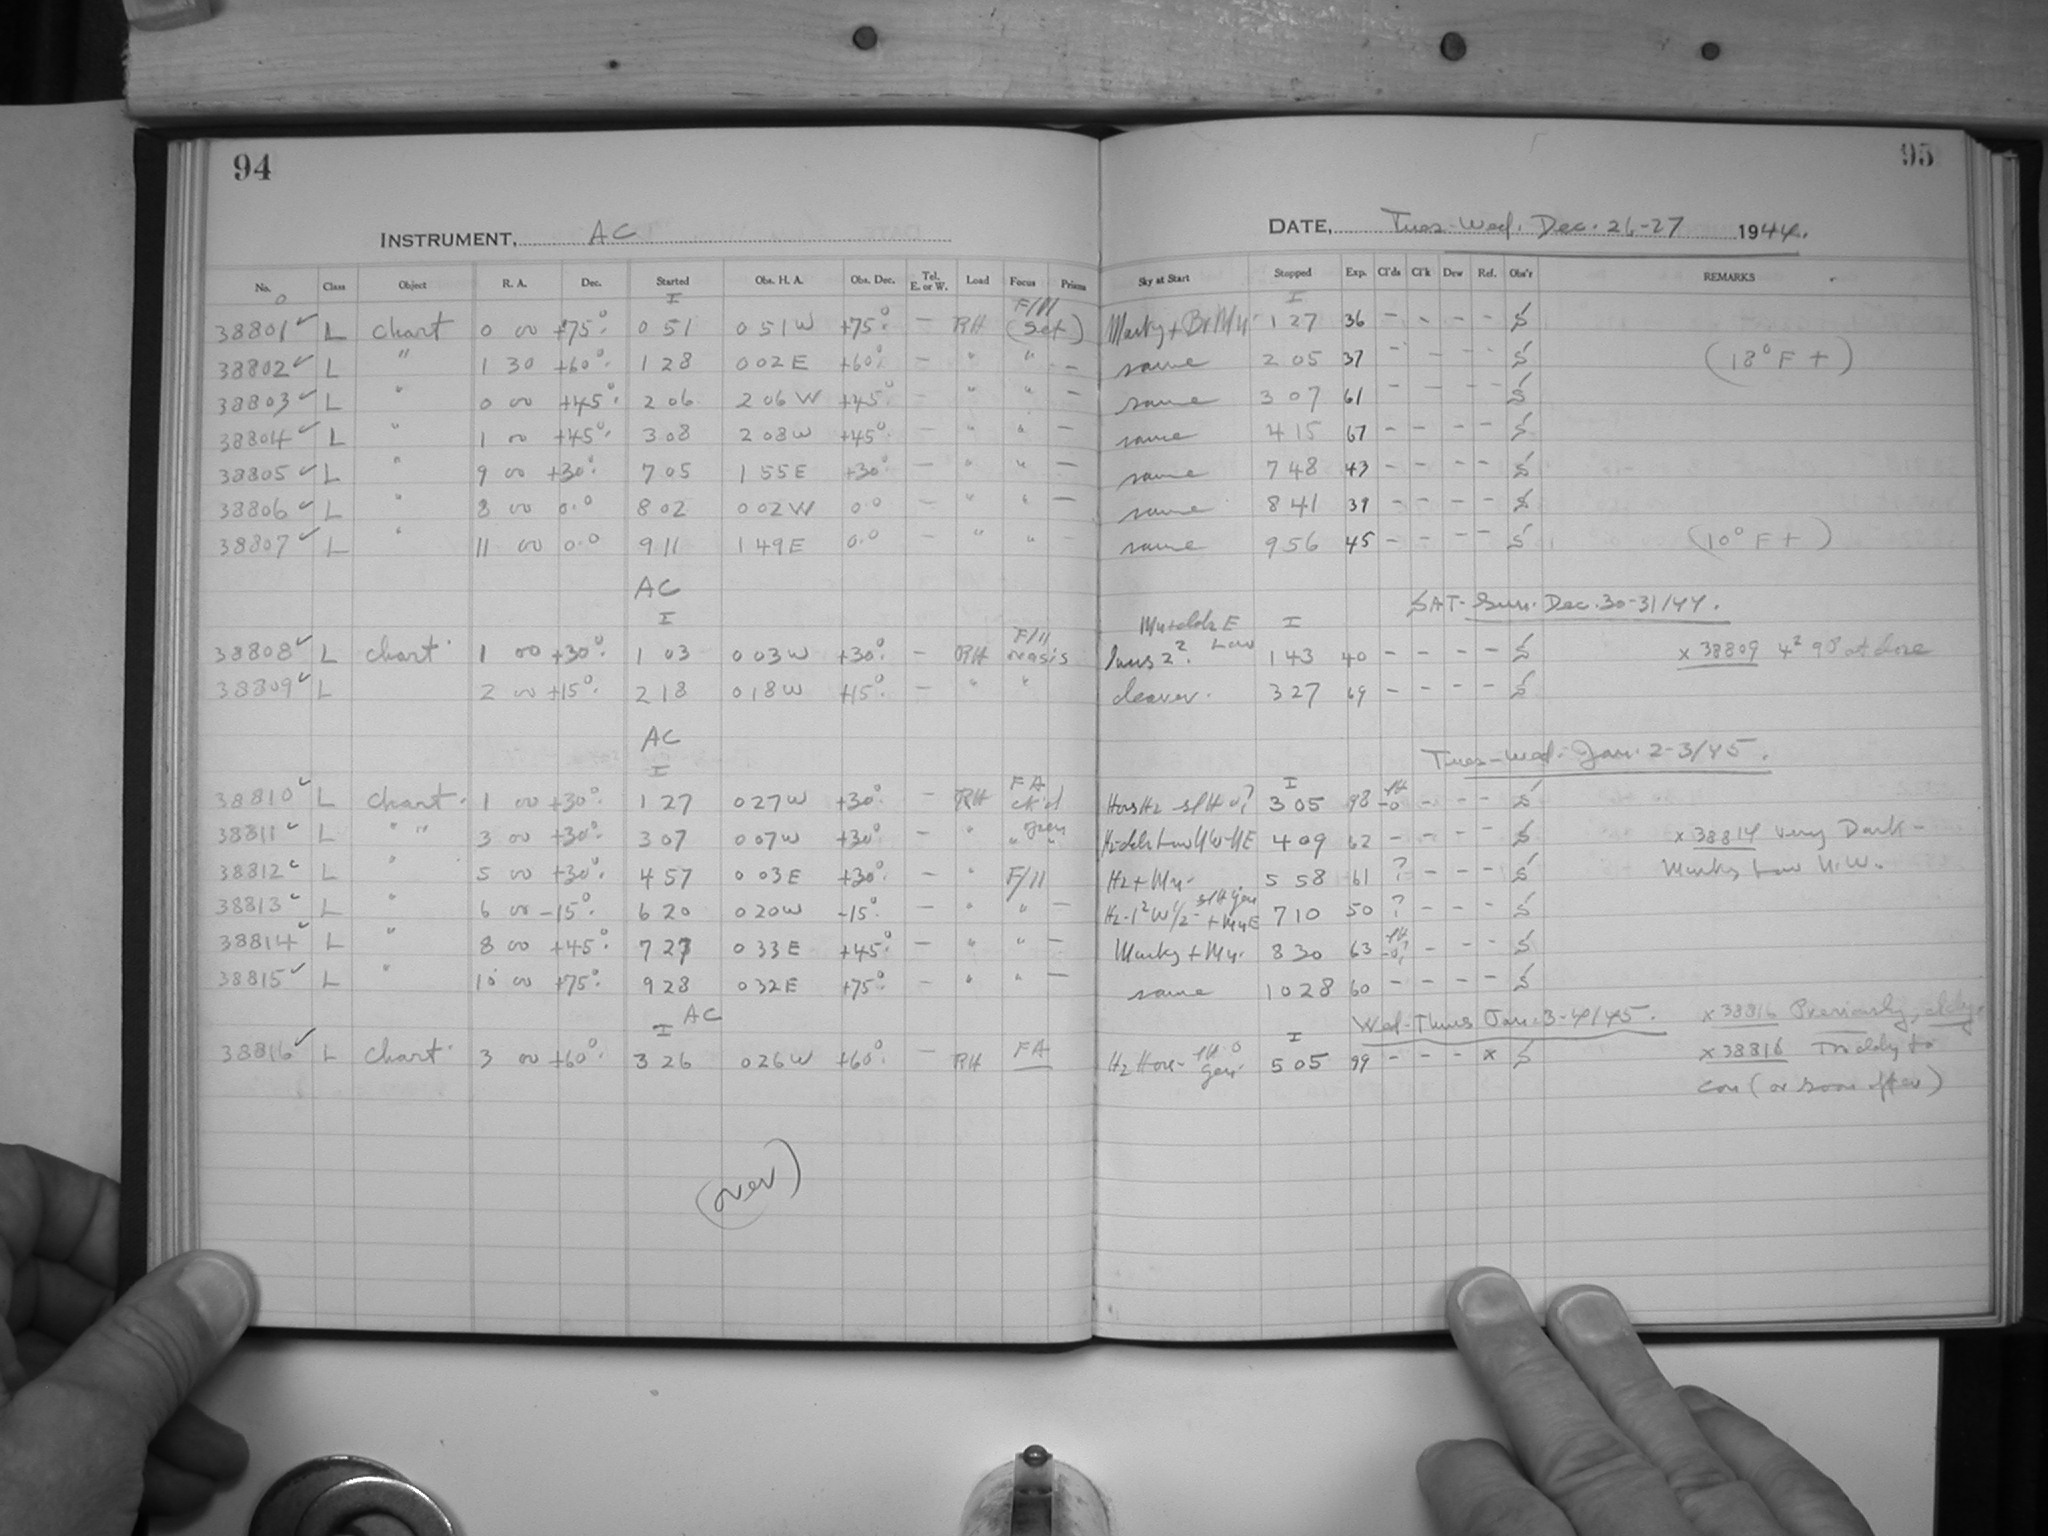 94
INSTRUMENT, AC
No. Class Object R. A. Dec. Started Obs. H. A. Obs. Dec. Tel. E. or W. Load Focus Prisms
I F/11
38801 ✓ L chart 0 00 +75° 0 51 0 51 W +75° - RH (Set)
38802 ✓ L " 1 30 +60° 1 28 0 02 E +60° - " " -
38803 ✓ L " 0 00 +45° 2 06 2 06 W +45° - " " -
38804 ✓ L " 1 00 +45° 3 08 2 08 W +45° - " " -
38805 ✓ L " 9 00 +30° 7 05 1 55 E +30° - " " -
38806 ✓ L " 8 00 0.0 8 02 0 02 W 0.0 - " " -
38807 ✓ L " 11 00 0.0 9 11 1 49 E 0.0 - " " -
AC
I F/11
38808 ✓ L chart 1 00 +30° 1 03 0 03 W +30° - RH
38809 ✓ L 2 00 +15° 2 18 0 18 W +15° - " "
AC
I FA
38810 ✓ L chart 1 00 +30° 1 27 0 27 W +30° - RH ck'd
38811 ✓ L " " 3 00 +30° 3 07 0 07 W +30° - " "
38812 ✓ L " 5 00 +30° 4 57 0 03 E +30° - " F/11
38813 ✓ L " 6 00 -15° 6 20 0 20 W -15° - " " -
38814 ✓ L " 8 00 +45° 7 27 0 33 E +45° - " " -
38815 ✓ L " 10 00 +75° 9 28 0 32 E +75° - " " -
I AC
38816 ✓ L chart 3 00 +60° 3 26 0 26 W +60° - RH FA
(over)
95
DATE, Tues-Wed. Dec. 26-27 1944.
Sky at Start Stopped Exp. Cl'ds Cl'k Dew Ref. Obs'r REMARKS
I
Murky + Br Mn 1 27 36 - - - - S
same 2 05 37 - - - - S (18° F +)
same 3 07 61 - - - - S
same 4 15 67 - - - - S
same 7 48 43 - - - - S
same 8 41 39 - - - - S
same 9 56 45 - - - - S (10° F +)
SAT-Sun. Dec. 30-31/44.
I
Low 1 43 40 - - - - S x 38809
clearer. 3 27 69 - - - - S
Tues-Wed. Jan. 2-3/45.
I
3 05 98 - - - S
4 09 62 - - - - S x 38814 Very Dark -
Hz + Mn. 5 58 61 ? - - - S Murky Low N.W.
7 10 50 ? - - - S
Murky + Mn. 8 30 63 - - - S
same 10 28 60 - - - - S
Wed-Thurs Jan. 3-4/45. x 38816 Previously
I
5 05 99 - - - x S x 38816
(or soon after)